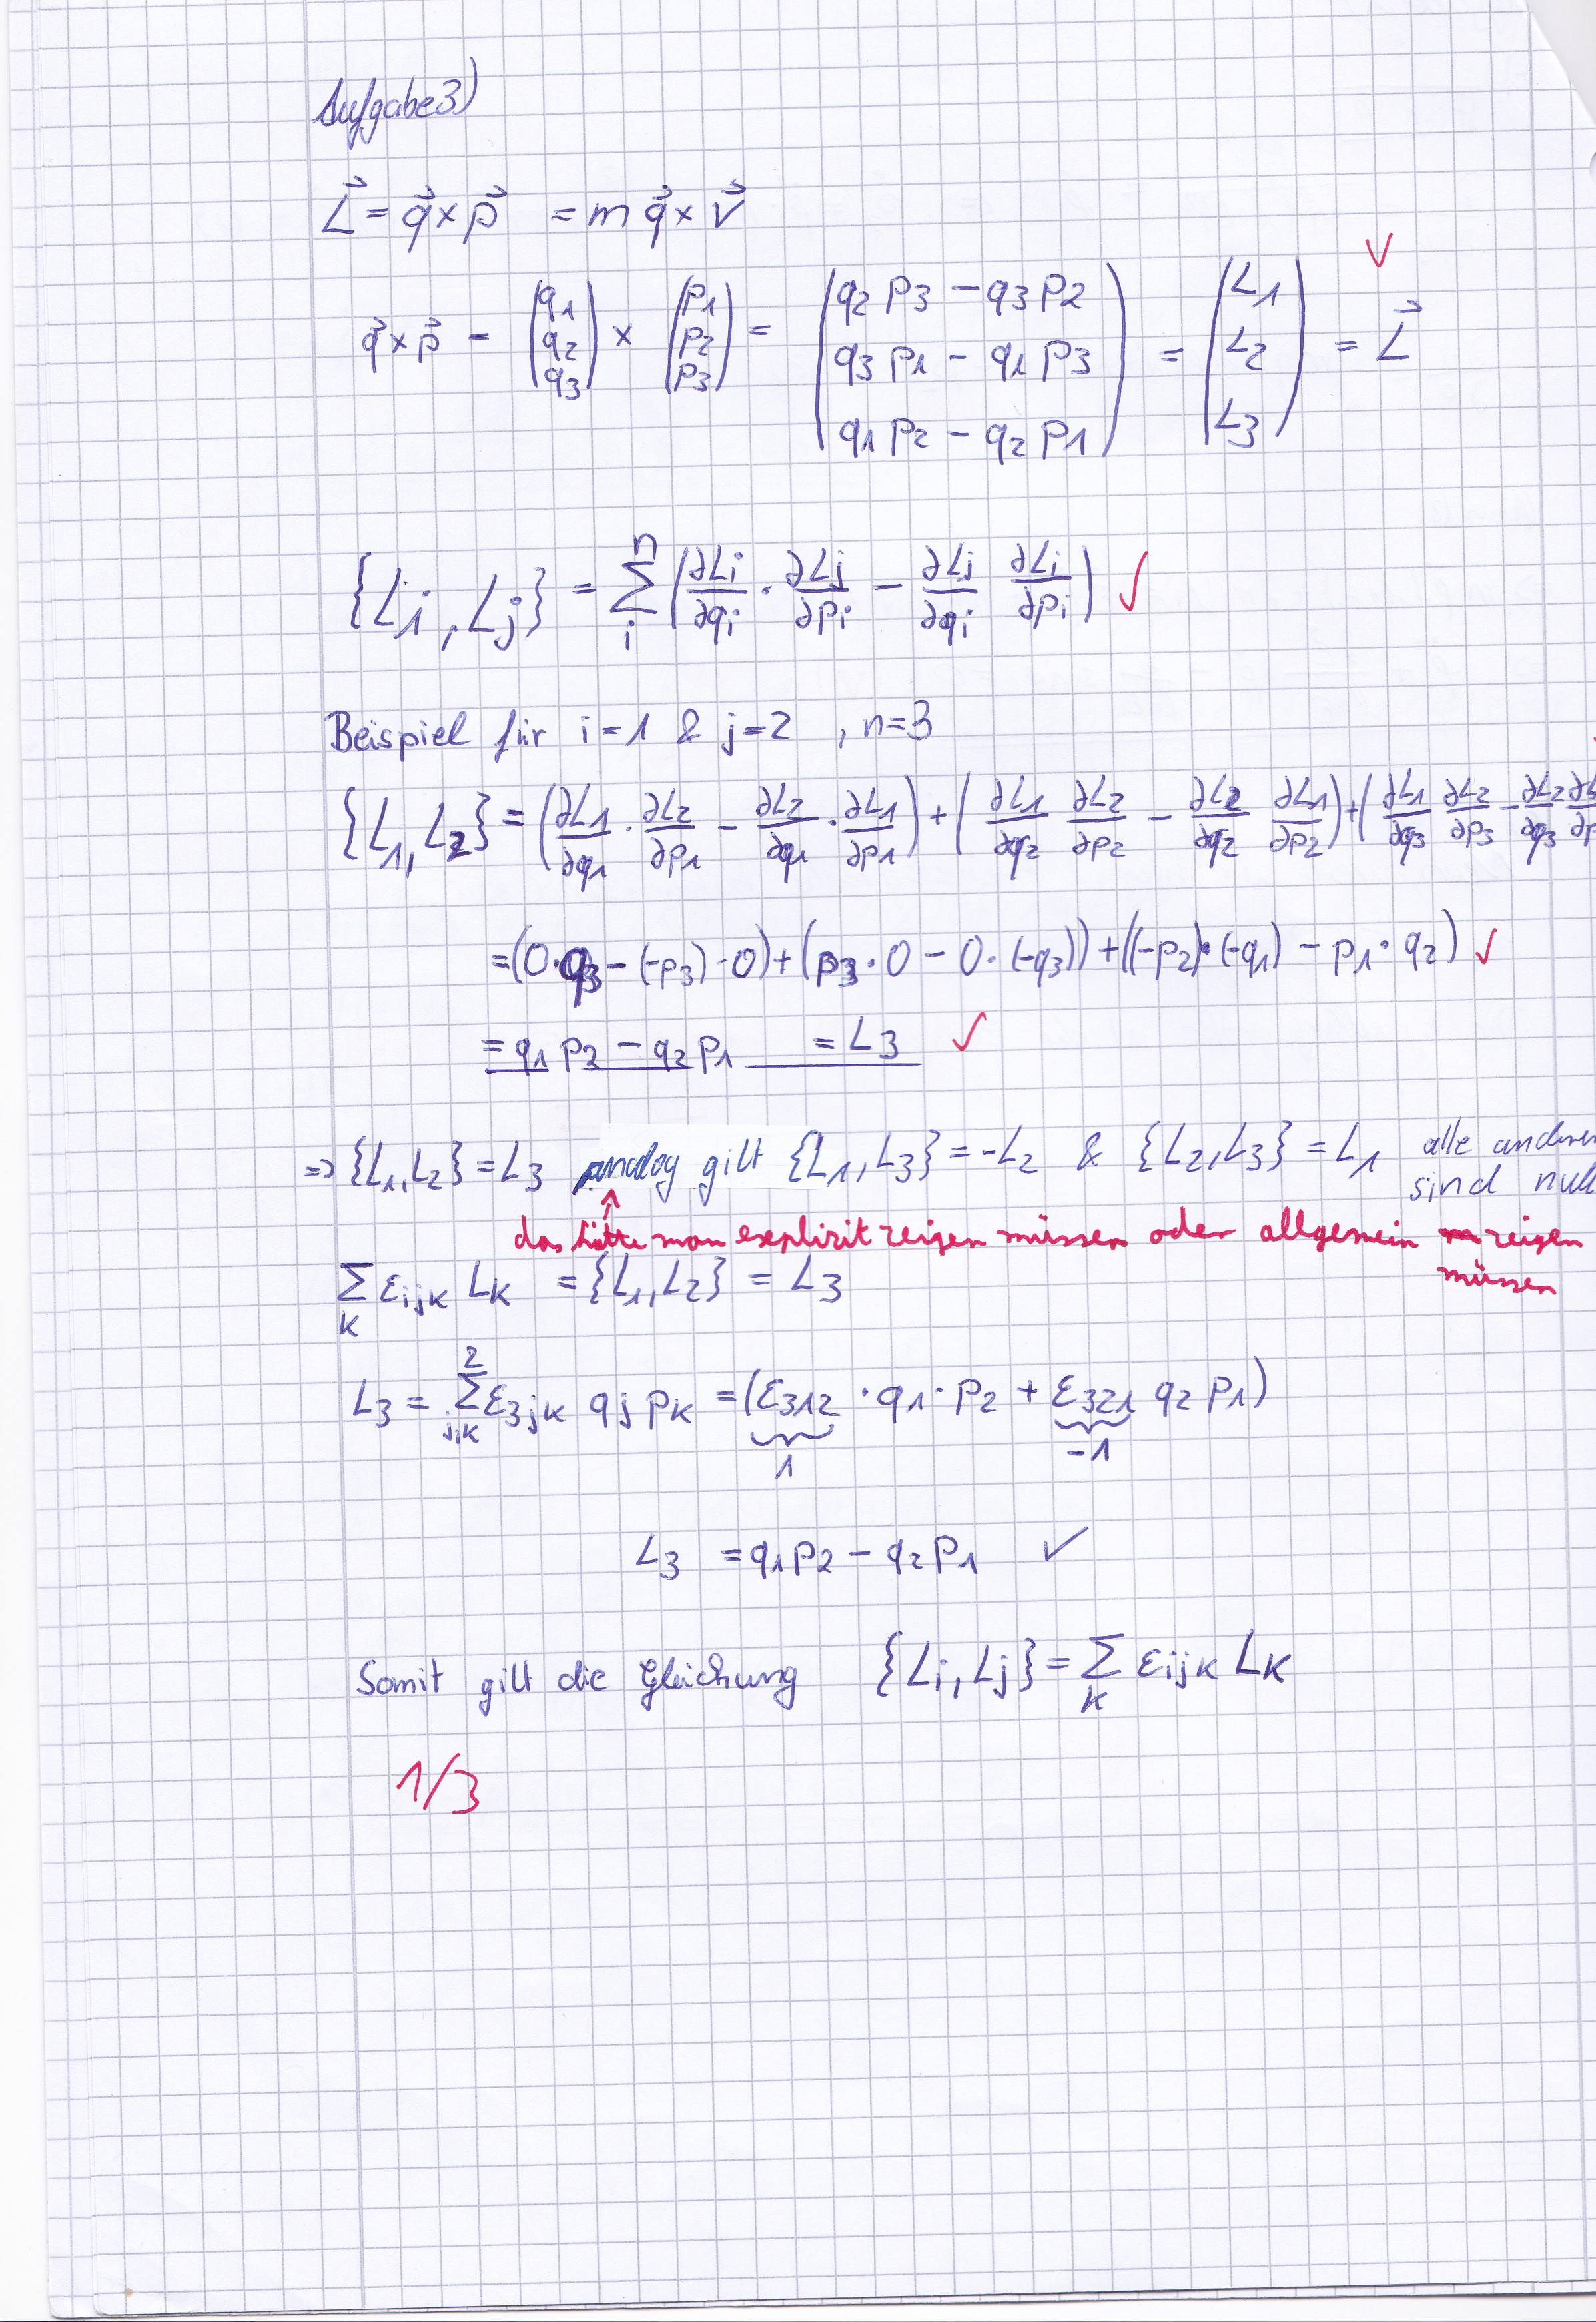 Aufgabe 3)
L⃗ = q⃗ × p⃗ = m q⃗ × v⃗
q⃗ × p⃗ = (q1 q2 q3) × (p1 p2 p3) = (q2 p3 − q3 p2 / q3 p1 − q1 p3 / q1 p2 − q2 p1) = (L1 L2 L3) = L⃗ ✓
{Li, Lj} = Σ_i^n (∂Li/∂qi · ∂Lj/∂pi − ∂Lj/∂qi ∂Li/∂pi) ✓
Beispiel für i=1 & j=2 , n=3
{L1, L2} = (∂L1/∂q1 · ∂L2/∂p1 − ∂L2/∂q1 · ∂L1/∂p1) + (∂L1/∂q2 ∂L2/∂p2 − ∂L2/∂q2 ∂L1/∂p2) + (∂L1/∂q3 ∂L2/∂p3 − ∂L2/∂q3 ∂L/∂p
= (0·q3 − (−p3)·0) + (p3·0 − 0·(−q3)) + ((−p2)·(−q1) − p1·q2) ✓
= q1 p2 − q2 p1 = L3 ✓
⇒ {L1, L2} = L3 analog gilt {L1, L3} = −L2 & {L2, L3} = L1 alle anderen
sind null
das hätte man explizit zeigen müssen oder allgemein zeigen
müssen
Σ_k εijk Lk = {L1, L2} = L3
L3 = Σ_{j,k}^2 ε3jk qj pk = (ε312 · q1 · p2 + ε321 q2 p1)
1 −1
L3 = q1 p2 − q2 p1 ✓
Somit gilt die Gleichung {Li, Lj} = Σ_k εijk Lk
1/3